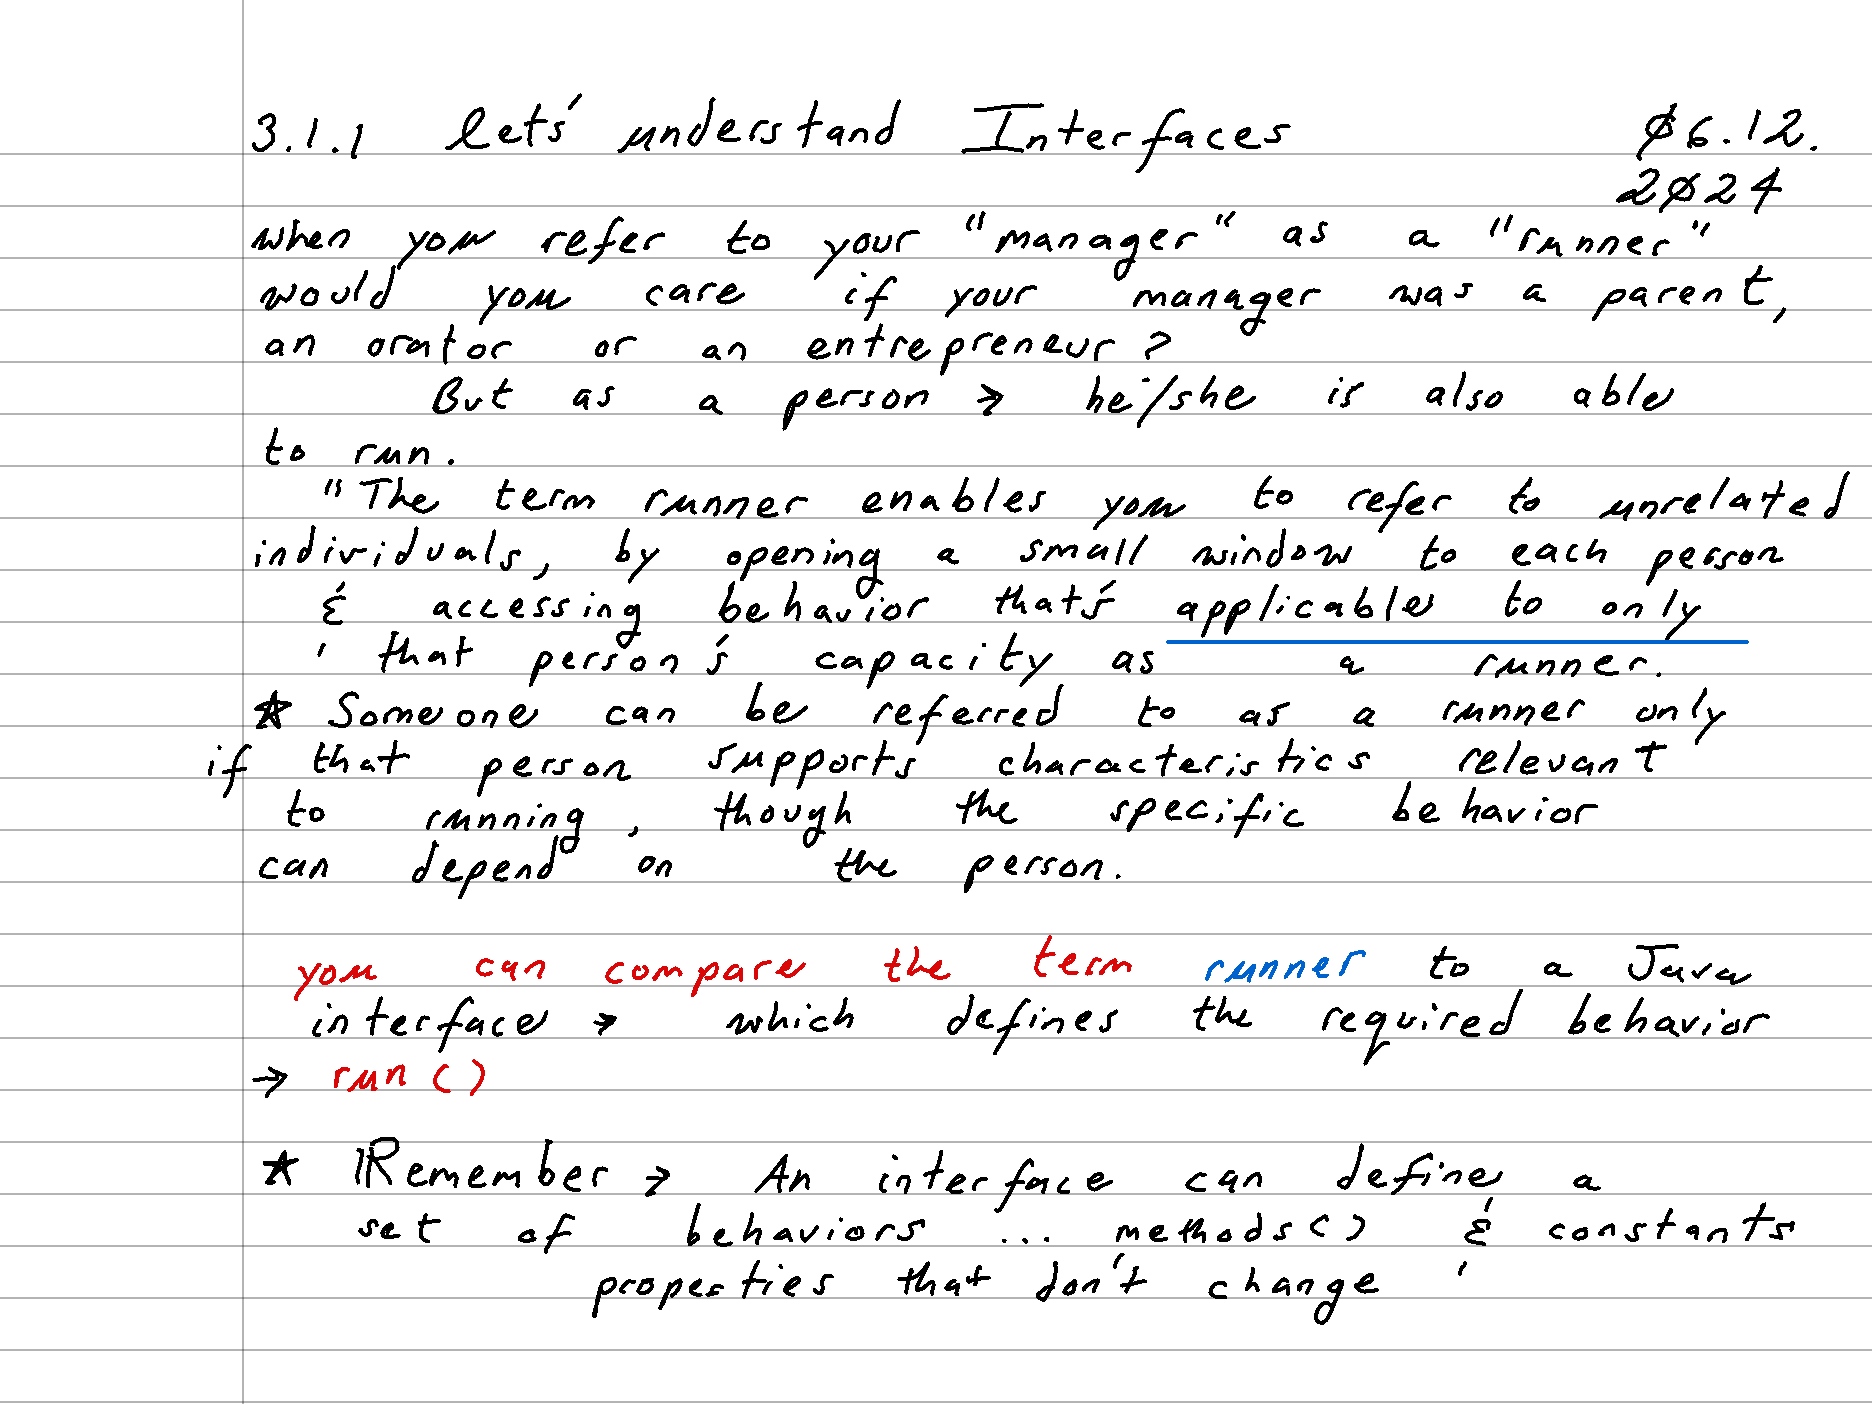 3.1.1 Let's understand Interfaces 06.12.
2024
when you refer to your "manager" as a "runner"
would you care if your manager was a parent,
an orator or an entrepreneur?
But as a person → he/she is also able
to run.
"The term runner enables you to refer to unrelated
individuals, by opening a small window to each person
& accessing behavior that's applicable to only
that person's capacity as a runner.
★ Someone can be referred to as a runner only
if that person supports characteristics relevant
to running, though the specific behavior
can depend on the person.
you can compare the term runner to a Java
interface → which defines the required behavior
→ run()
★ Remember → An interface can define a
set of behaviors ... methods() & constants
properties that don't change